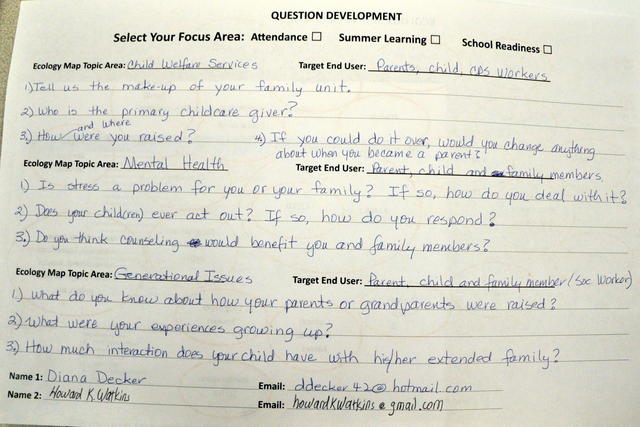 QUESTION DEVELOPMENT
Select Your Focus Area: Attendance ☐ Summer Learning ☐ School Readiness ☐
Ecology Map Topic Area: Child Welfare Services Target End User: Parents, child, CPS workers
1) Tell us the make-up of your family unit.
2) Who is the primary childcare giver?
3.) How and where were you raised? 4) If you could do it over, would you change anything
about when you became a parent?
Ecology Map Topic Area: Mental Health Target End User: Parent, child and family members
1) Is stress a problem for you or your family? If so, how do you deal with it?
2) Does your child(ren) ever act out? If so, how do you respond?
3.) Do you think counseling would benefit you and family members?
Ecology Map Topic Area: Generational Issues Target End User: Parent, child and family member/(Soc Worker)
1.) What do you know about how your parents or grandparents were raised?
2) What were your experiences growing up?
3.) How much interaction does your child have with his/her extended family?
Name 1: Diana Decker Email: ddecker42@hotmail.com
Name 2: Howard K. Watkins Email: howardKWatkins@gmail.com